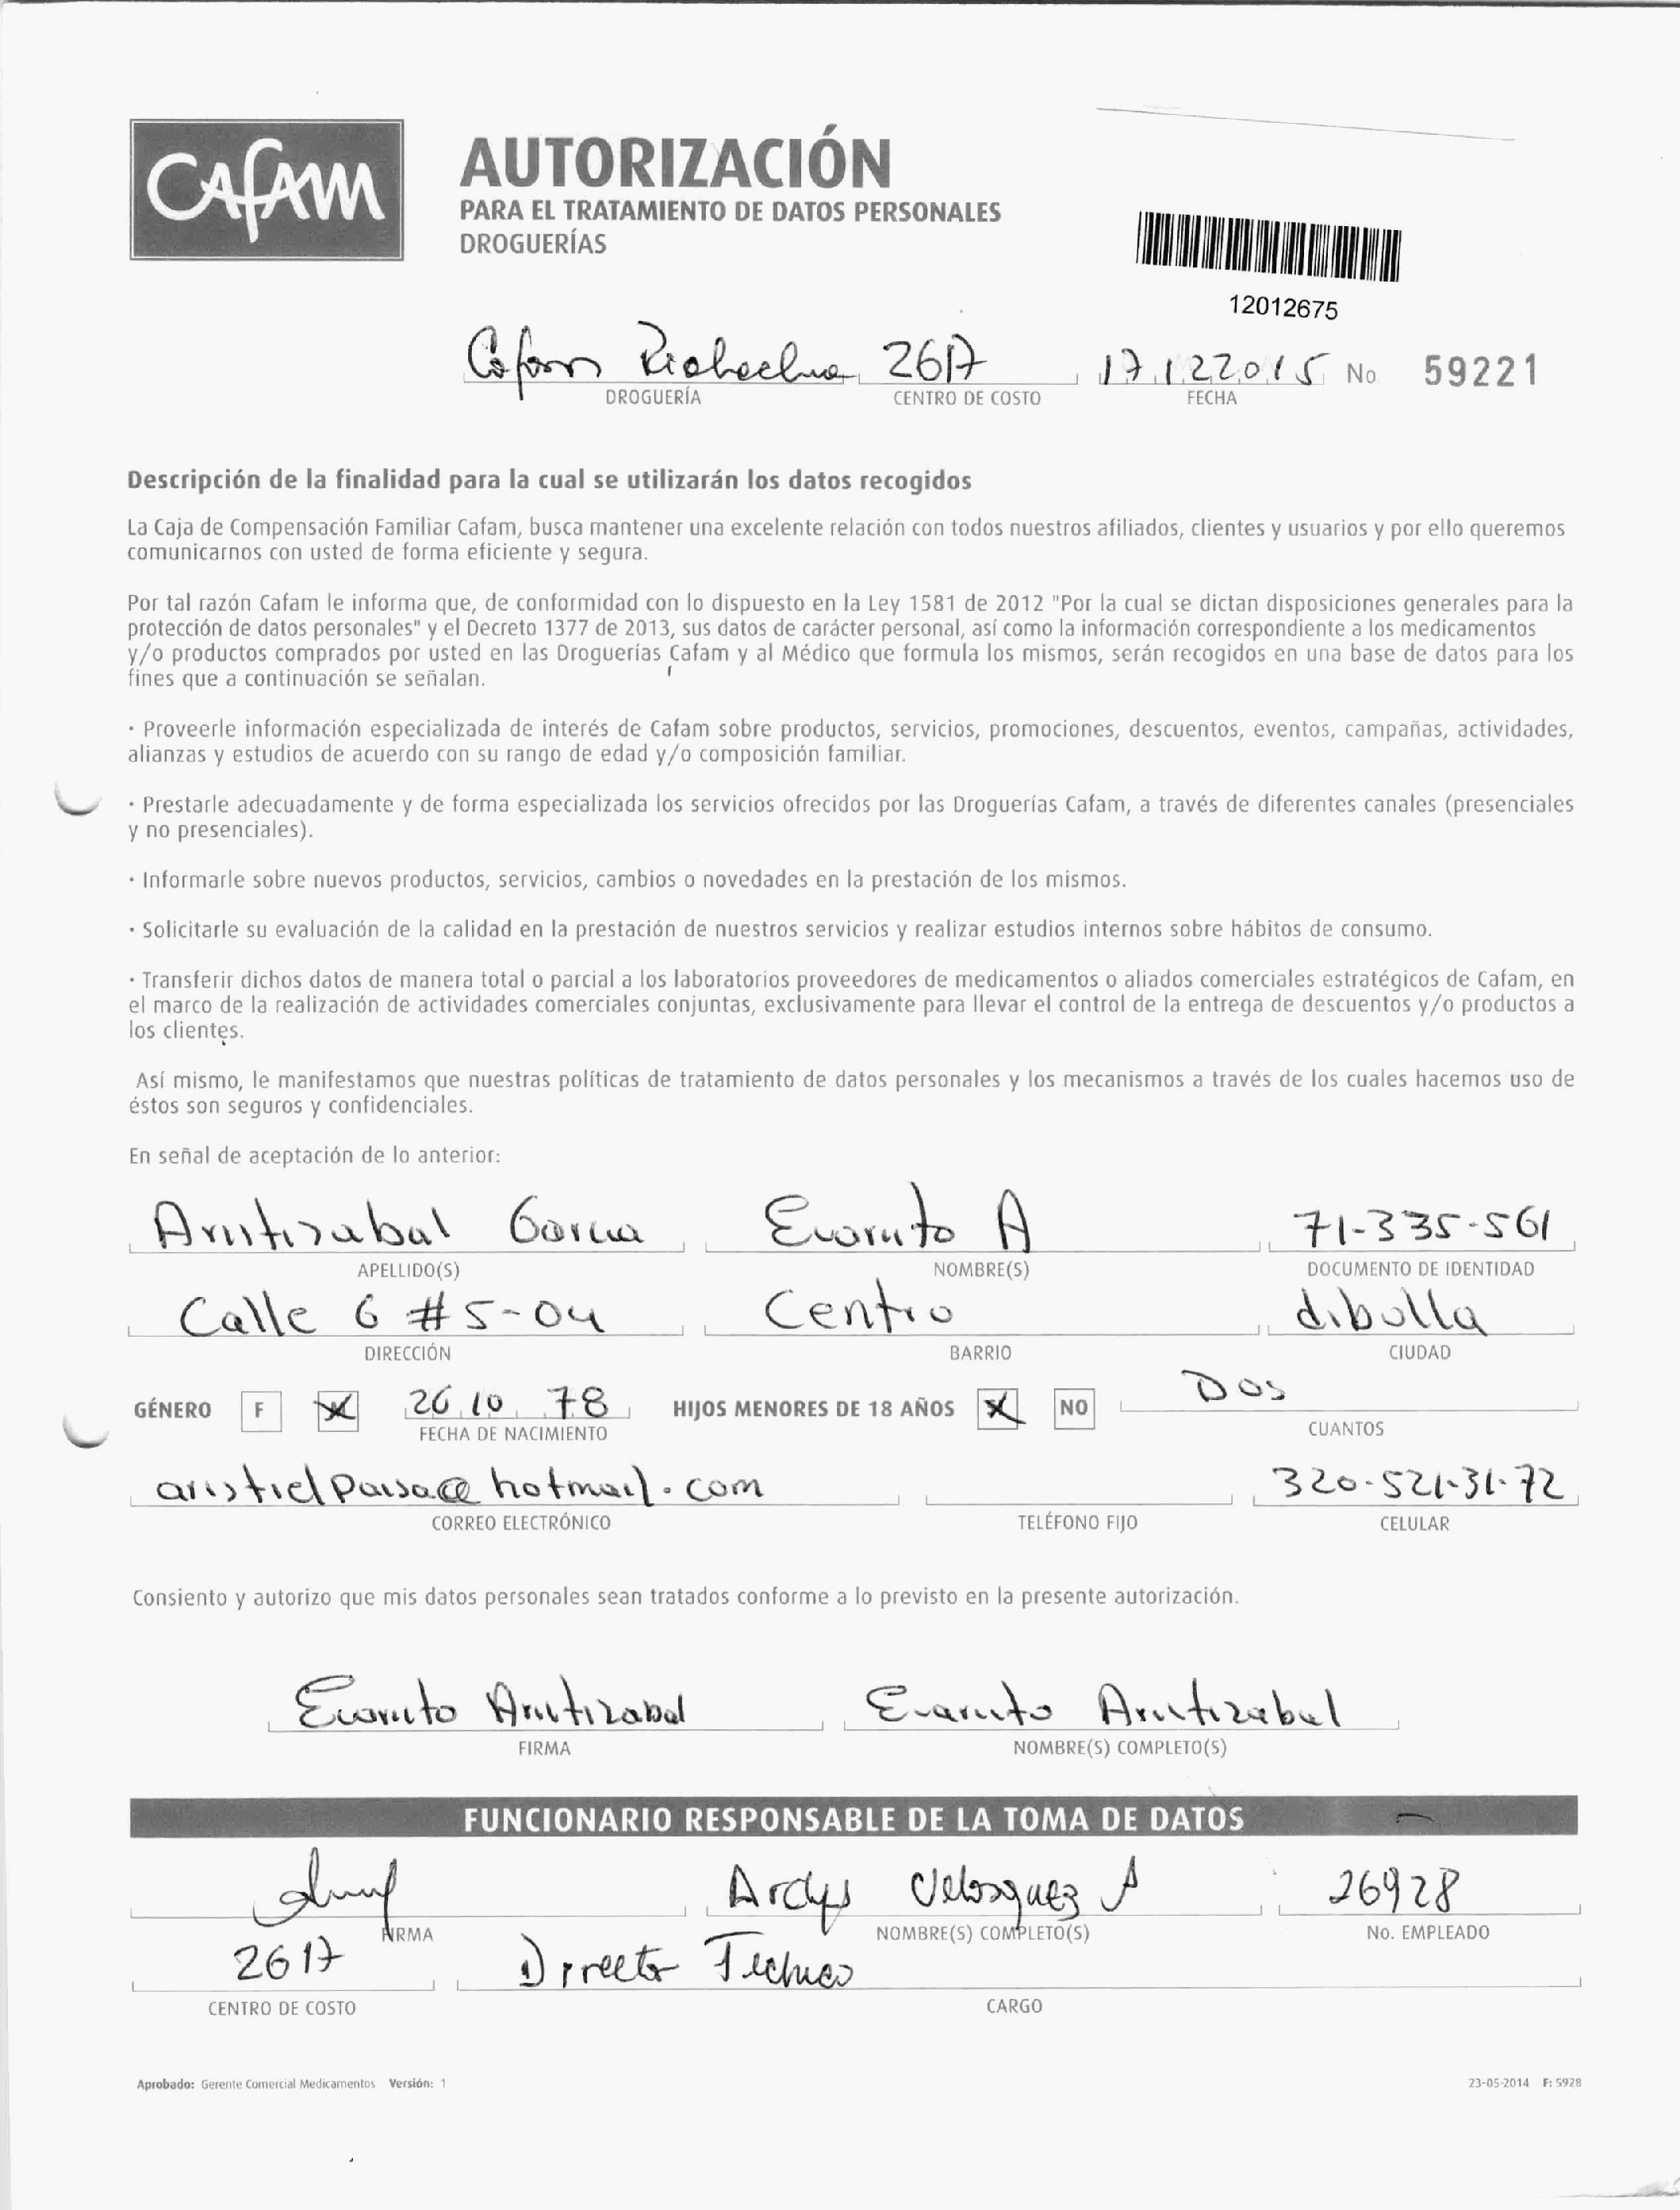 CAFAM
AUTORIZACIÓN
PARA EL TRATAMIENTO DE DATOS PERSONALES
DROGUERÍAS
12012675
Cafam Riohacha 2617 17 12 2015 No. 59221
DROGUERÍA CENTRO DE COSTO FECHA
Descripción de la finalidad para la cual se utilizarán los datos recogidos
La Caja de Compensación Familiar Cafam, busca mantener una excelente relación con todos nuestros afiliados, clientes y usuarios y por ello queremos
comunicarnos con usted de forma eficiente y segura.
Por tal razón Cafam le informa que, de conformidad con lo dispuesto en la Ley 1581 de 2012 "Por la cual se dictan disposiciones generales para la
protección de datos personales" y el Decreto 1377 de 2013, sus datos de carácter personal, así como la información correspondiente a los medicamentos
y/o productos comprados por usted en las Droguerías Cafam y al Médico que formula los mismos, serán recogidos en una base de datos para los
fines que a continuación se señalan.
· Proveerle información especializada de interés de Cafam sobre productos, servicios, promociones, descuentos, eventos, campañas, actividades,
alianzas y estudios de acuerdo con su rango de edad y/o composición familiar.
· Prestarle adecuadamente y de forma especializada los servicios ofrecidos por las Droguerías Cafam, a través de diferentes canales (presenciales
y no presenciales).
· Informarle sobre nuevos productos, servicios, cambios o novedades en la prestación de los mismos.
· Solicitarle su evaluación de la calidad en la prestación de nuestros servicios y realizar estudios internos sobre hábitos de consumo.
· Transferir dichos datos de manera total o parcial a los laboratorios proveedores de medicamentos o aliados comerciales estratégicos de Cafam, en
el marco de la realización de actividades comerciales conjuntas, exclusivamente para llevar el control de la entrega de descuentos y/o productos a
los clientes.
Así mismo, le manifestamos que nuestras políticas de tratamiento de datos personales y los mecanismos a través de los cuales hacemos uso de
éstos son seguros y confidenciales.
En señal de aceptación de lo anterior:
Aristizabal Garcia Evaristo A 71-335-561
APELLIDO(S) NOMBRE(S) DOCUMENTO DE IDENTIDAD
Calle 6 #5-04 Centro dibulla
DIRECCIÓN BARRIO CIUDAD
GÉNERO F 26 10 78 HIJOS MENORES DE 18 AÑOS NO Dos
FECHA DE NACIMIENTO CUANTOS
aristielpaisa@hotmail.com 320-521-31-72
CORREO ELECTRÓNICO TELÉFONO FIJO CELULAR
Consiento y autorizo que mis datos personales sean tratados conforme a lo previsto en la presente autorización.
Evaristo Aristizabal Evaristo Aristizabal
FIRMA NOMBRE(S) COMPLETO(S)
FUNCIONARIO RESPONSABLE DE LA TOMA DE DATOS
Ardys Velasquez A 26928
FIRMA NOMBRE(S) COMPLETO(S) No. EMPLEADO
2617 Director Tecnico
CENTRO DE COSTO CARGO
Aprobado: Gerente Comercial Medicamentos Versión: 1 23-05-2014 F: 5928